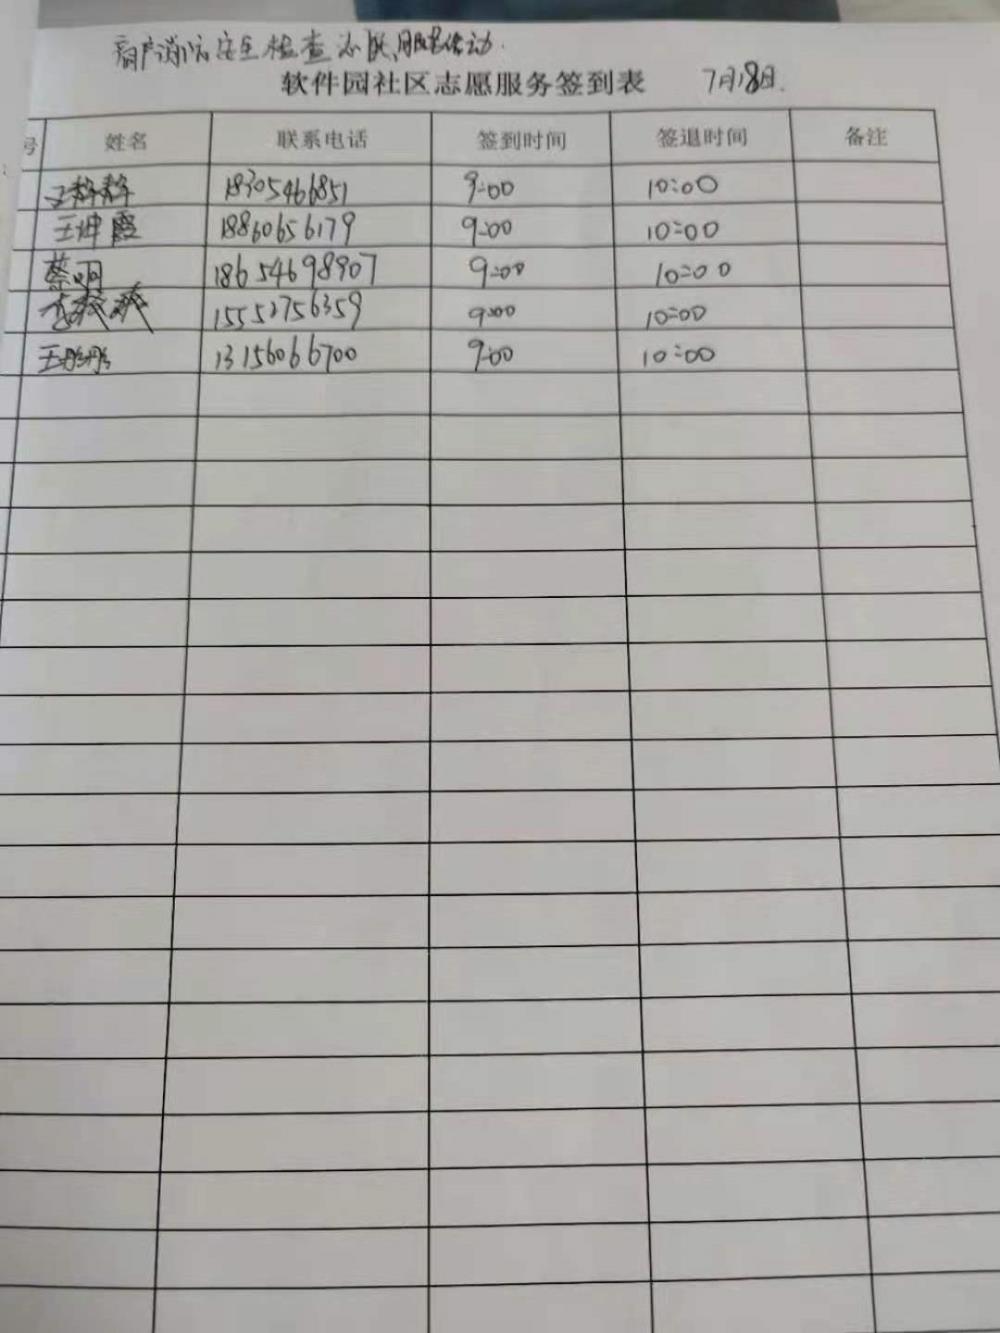 商户消防安全检查志愿服务活动.
软件园社区志愿服务签到表 7月18日.
号 姓名 联系电话 签到时间 签退时间 备注
王静静 18305466851 9:00 10:00
王坤霞 18860656179 9:00 10:00
蔡明 18654698907 9:00 10:00
爽爽 15552756359 9:00 10:00
王彤彤 13156066700 9:00 10:00